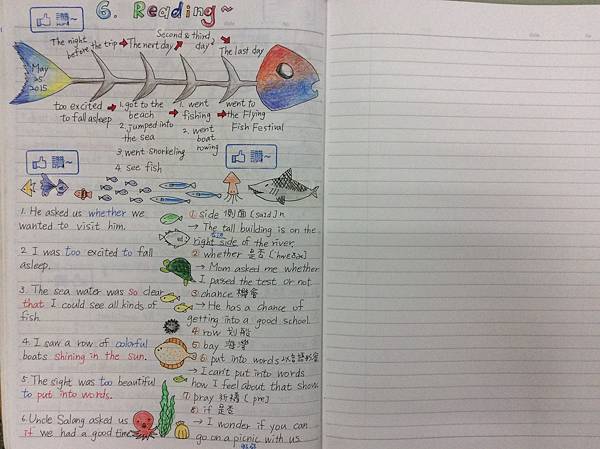 讚~
6. Reading~
The night before the trip
The next day
Second & third day
The last day
May 25 2015
too excited to fall asleep
1. got to the beach
2. jumped into the sea
3. went snorkeling
4. see fish
1. went fishing
2. went boat rowing
went to the Flying Fish Festival
讚~
1. He asked us whether we
wanted to visit him.
2. I was too excited to fall
asleep.
3. The sea water was so clear
that I could see all kinds of
fish.
4. I saw a row of colorful
boats shining in the sun.
5. The sight was too beautiful
to put into words.
6. Uncle Salang asked us
if we had a good time
① side 側面 [saɪd] n
→ The tall building is on the
right side of the river.
② whether 是否
→ Mom asked me whether
I passed the test or not.
③ chance 機會
→ He has a chance of
getting into a good school.
④ row 划船
⑤ bay 海灣
⑥ put into words
→ I can't put into words
how I feel about that show.
⑦ pray 祈禱
⑧ if 是否
→ I wonder if you can
go on a picnic with us.